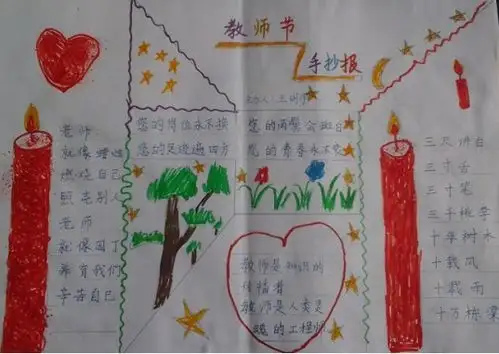 教师节
手抄报
老师
就像蜡烛
燃烧自己
照亮别人
老师
就像园丁
养育我们
辛苦自己
您的岗位永不换
您的足迹遍四方
您的两鬓会斑白
您的青春永不老
教师是知识的
传播者
教师是人类灵
魂的工程师
三尺讲台
三寸舌
三寸笔
三千桃李
十年树木
十载风
十载雨
十万栋梁